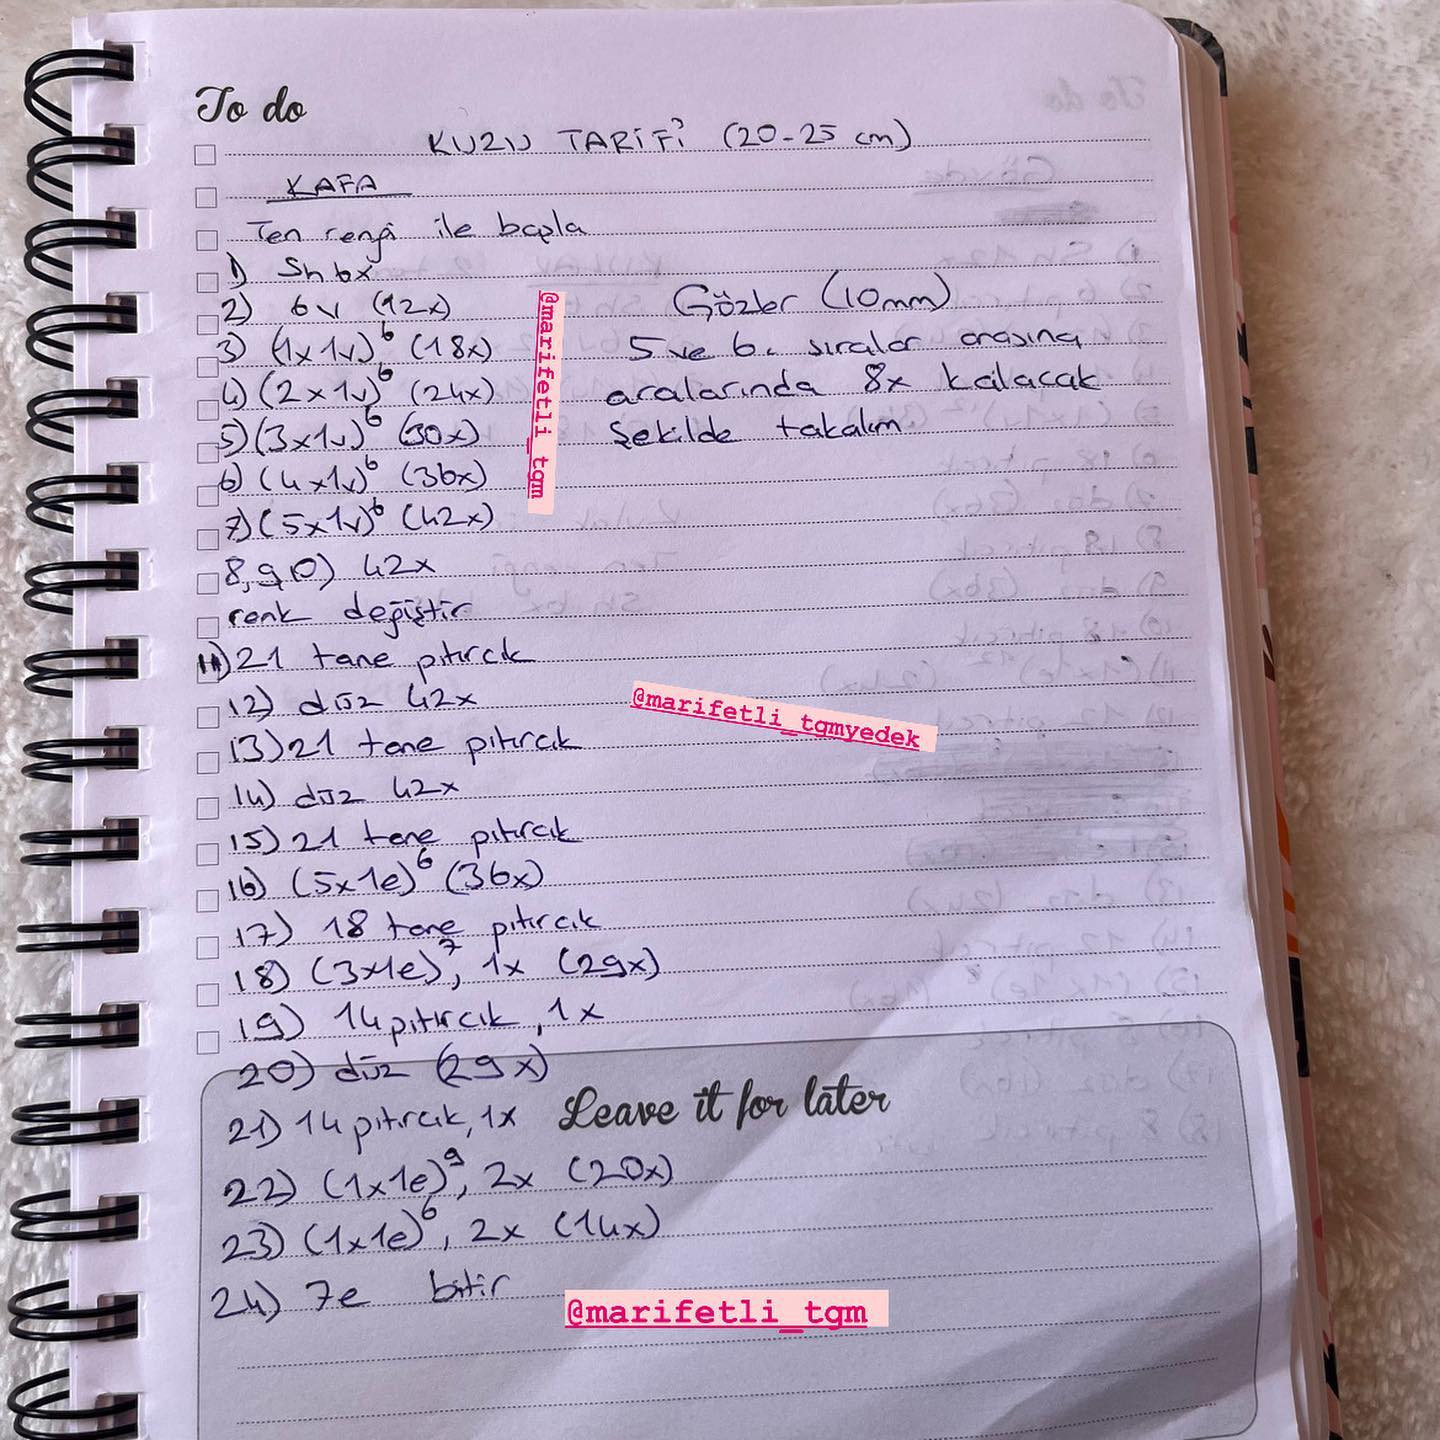 To do
KUZU TARİFİ (20-25 cm)
KAFA
Ten rengi ile başla
1) Sh 6x
2) 6v (12x)
3) (1x1v)⁶ (18x)
4) (2x1v)⁶ (24x)
5) (3x1v)⁶ (30x)
6) (4x1v)⁶ (36x)
7) (5x1v)⁶ (42x)
8,9,10) 42x
renk değiştir
11) 21 tane pıtırcık
12) düz 42x
13) 21 tane pıtırcık
14) düz 42x
15) 21 tane pıtırcık
16) (5x1e)⁶ (36x)
17) 18 tane pıtırcık
18) (3x1e)⁷, 1x (29x)
19) 14 pıtırcık, 1x
20) düz (29x)
21) 14 pıtırcık, 1x
22) (1x1e)⁹, 2x (20x)
23) (1x1e)⁶, 2x (14x)
24) 7e bitir
Gözler (10mm)
5 ve 6. sıralar arasına
aralarında 8x kalacak
şekilde takalım
@marifetli_tgm
@marifetli_tgmyedek
Leave it for later
@marifetli_tgm